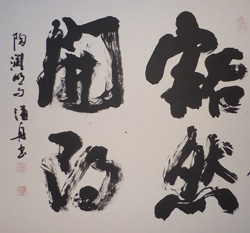 豁然
開朗
陶淵明句 書